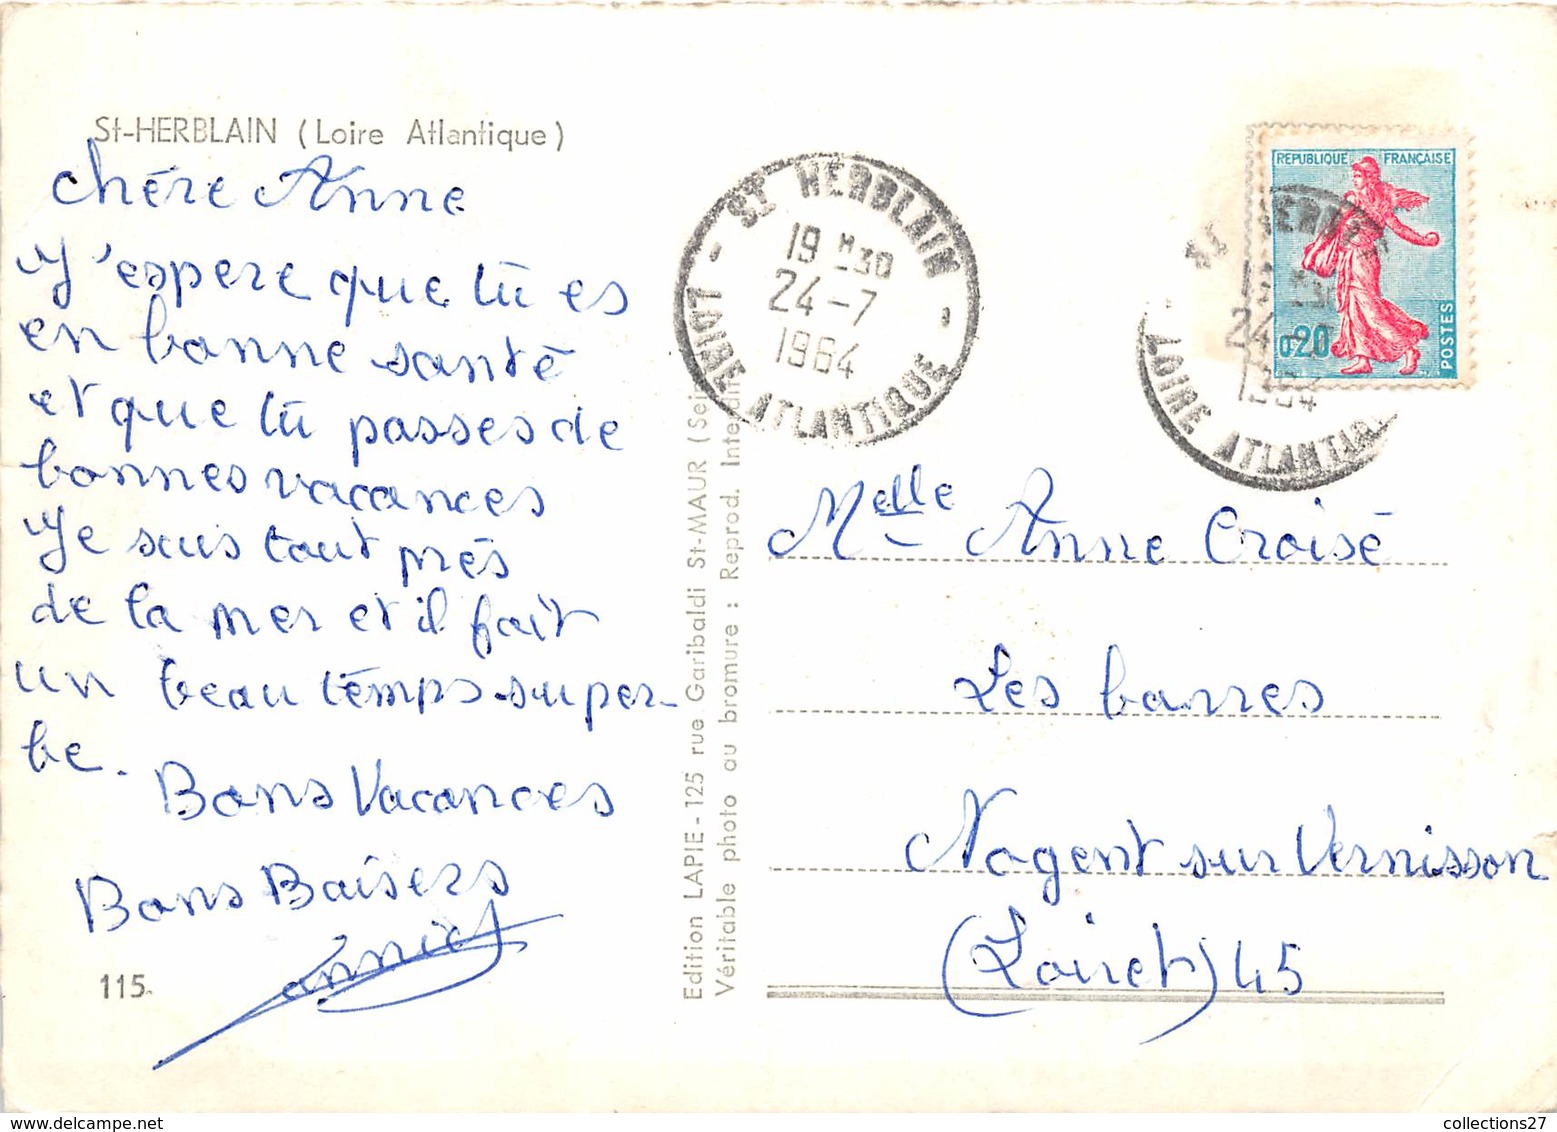 St-HERBLAIN (Loire Atlantique)
chère Anne
J'espere que tu es
en bonne santé
et que tu passes de
bonnes vacances
Je suis tout près
de la mer et il fait
un beau temps super-
be.
Bons Vacances
Bons Baisers
annick
115.
Edition LAPIE - 125 rue Garibaldi St-MAUR (Sei
Véritable photo au bromure : Reprod. Interdit
ST HERBLAIN
19 H 30
24-7
1964
LOIRE ATLANTIQUE
REPUBLIQUE FRANÇAISE
0,20
POSTES
24
LOIRE ATLANTIQ
Melle Anne Croisé
Les barres
Nogent sur Vernisson
(Loiret) 45
collections27